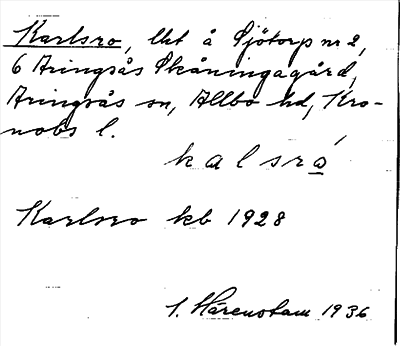 Karlsro, lht å Sjötorp nr 2,
6 Aringsås Skåningagård,
Aringsås sn, Allbo hd, Kro-
nobs l.
kalsró
Karlsro kb 1928
1. Hårenstam 1936